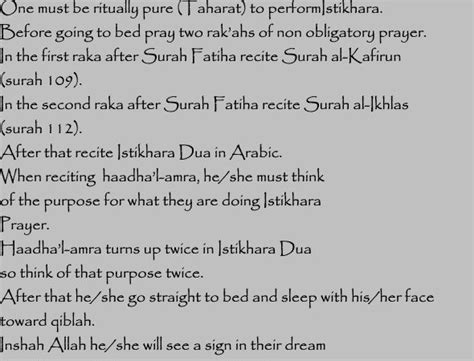 One must be ritually pure (Taharat) to performIstikhara.
Before going to bed pray two rak'ahs of non obligatory prayer.
In the first raka after Surah Fatiha recite Surah al-Kafirun
(surah 109).
In the second raka after Surah Fatiha recite Surah al-Ikhlas
(surah 112).
After that recite Istikhara Dua in Arabic.
When reciting haadha'l-amra, he/she must think
of the purpose for what they are doing Istikhara
Prayer.
Haadha'l-amra turns up twice in Istikhara Dua
so think of that purpose twice.
After that he/she go straight to bed and sleep with his/her face
toward qiblah.
Inshah Allah he/she will see a sign in their dream